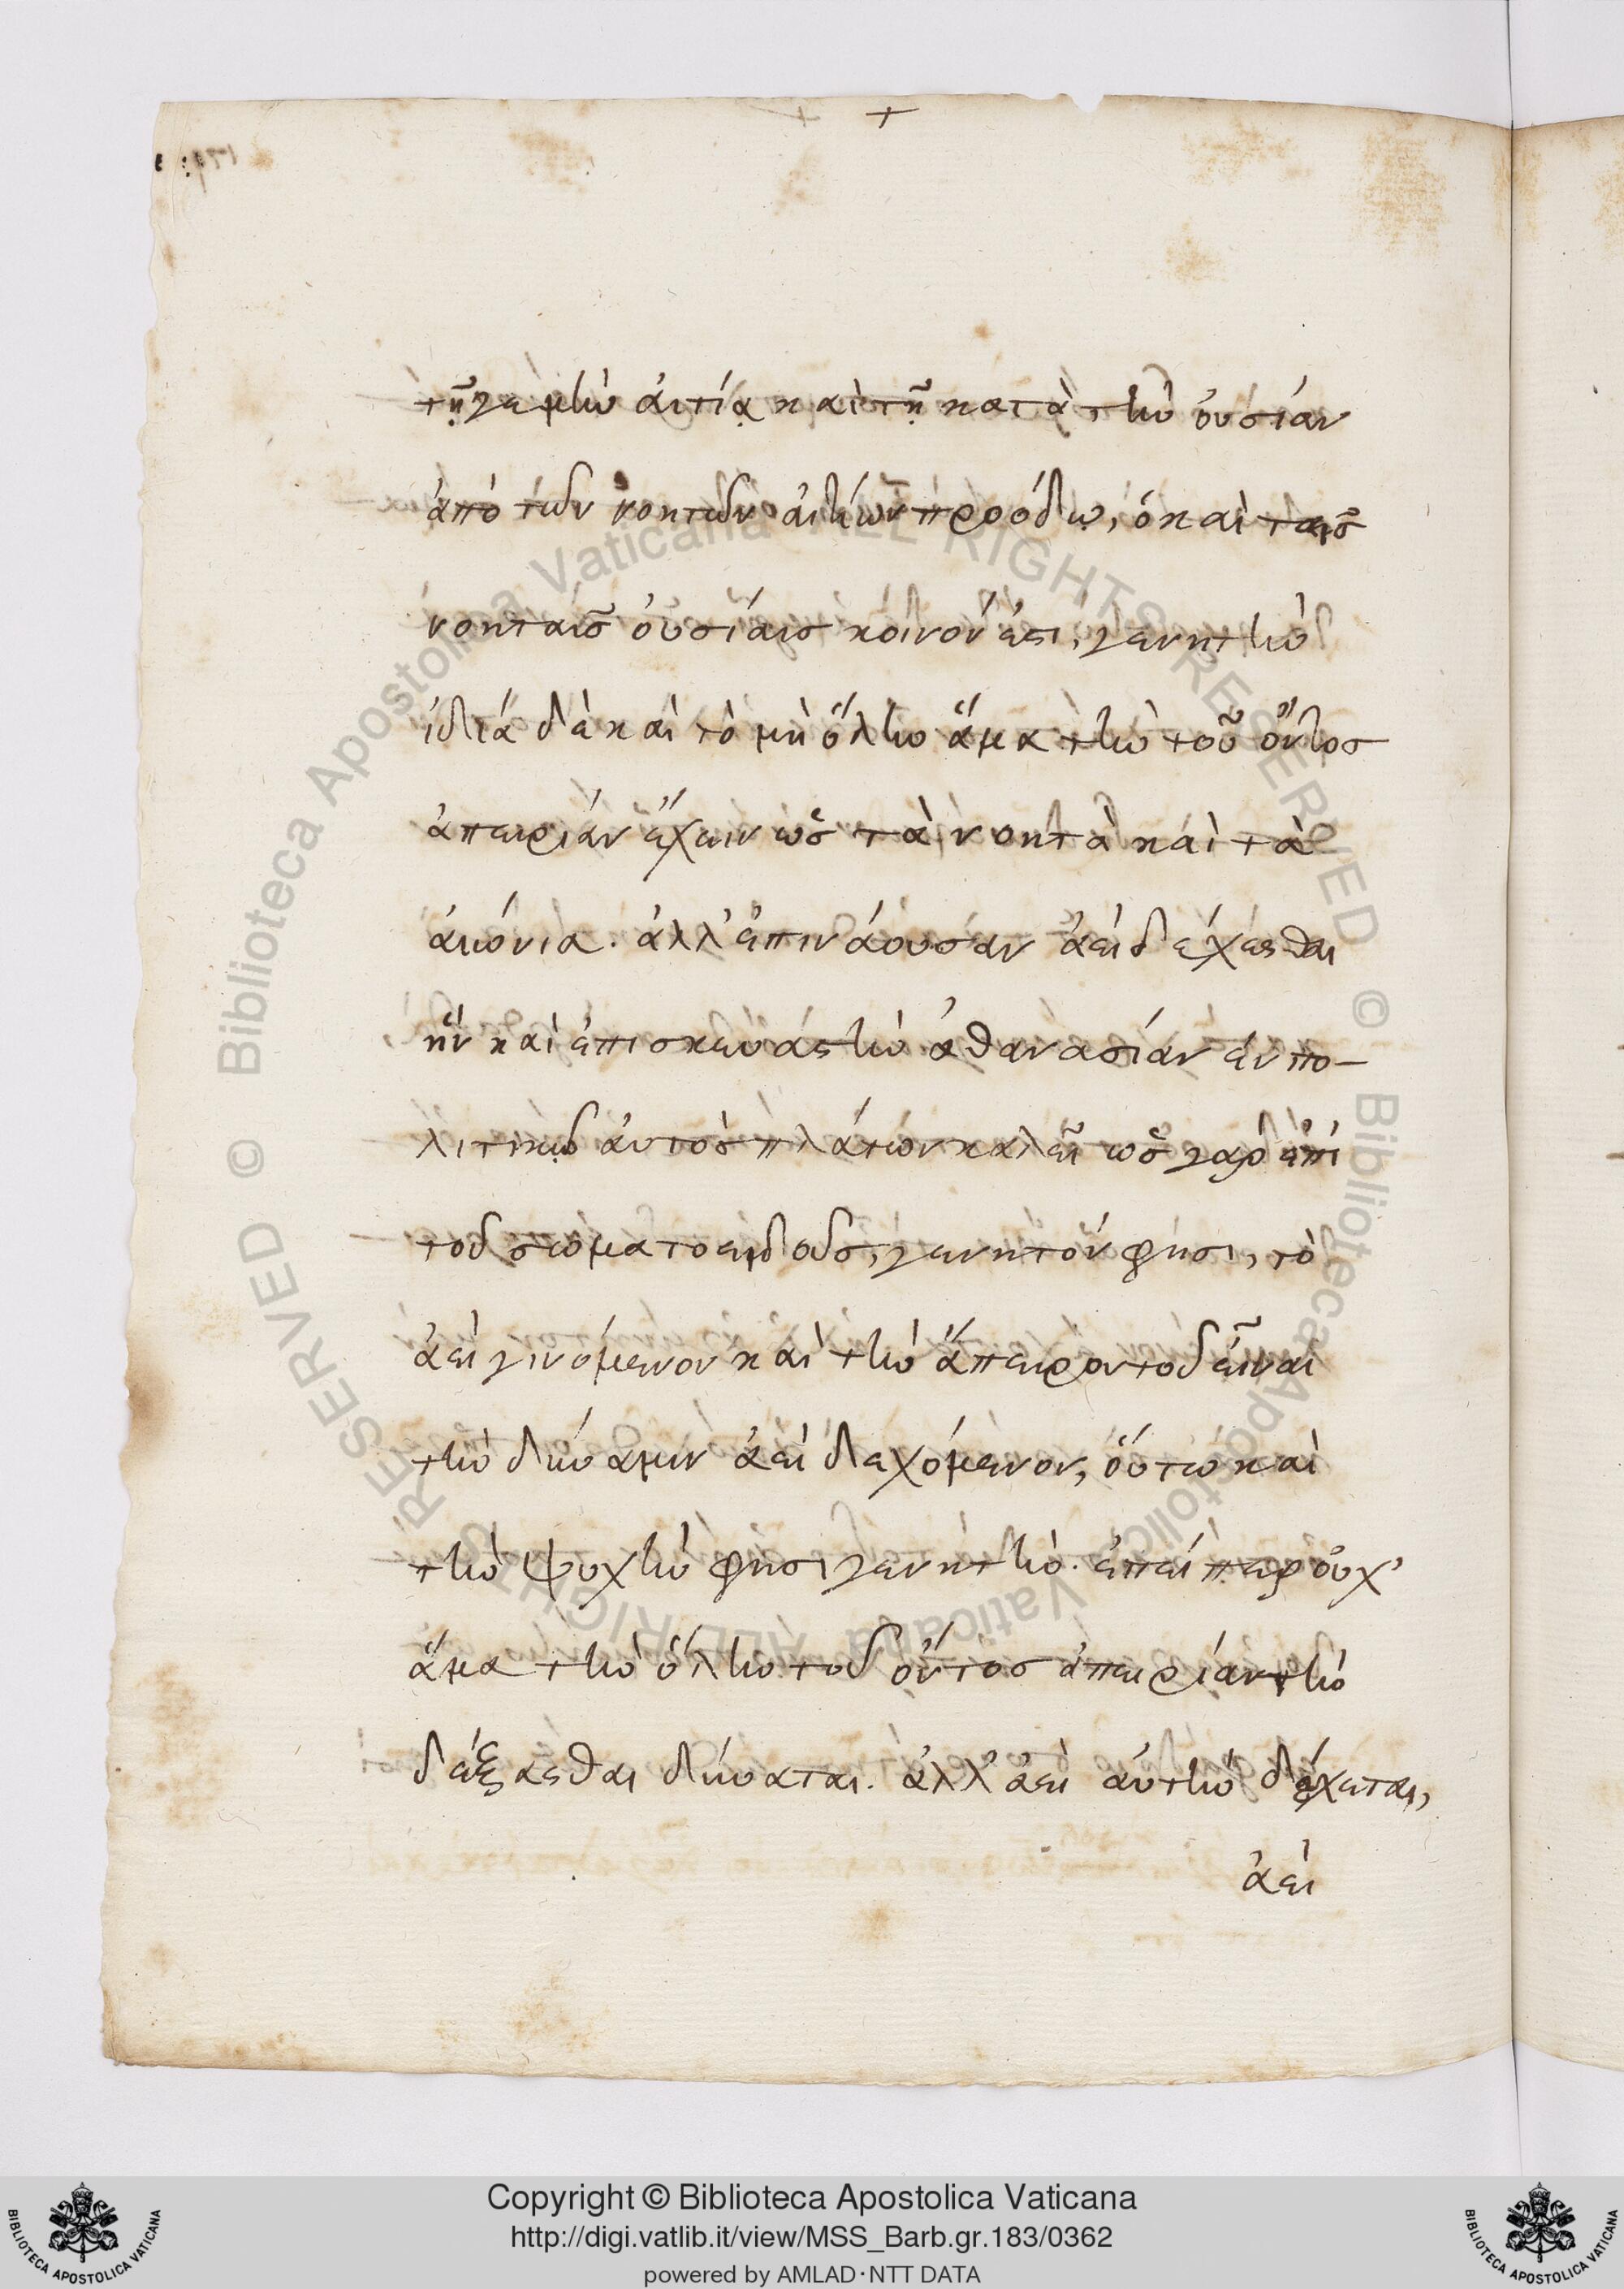 +
τῇ γε μὴν αἰτίᾳ καὶ τῇ κατὰ τὴν οὐσίαν
ἀπὸ τῶν νοητῶν αἰτίων προόδῳ, ὁ καὶ ταῖς
νοηταῖς οὐσίαις κοινόν ἐστι, γενητὴν
ἰδίᾳ δὲ καὶ τὸ μὴ ὅλην ἅμα τὴν τοῦ ὄντος
ἀπειρίαν ἔχειν ὡς τὰ νοητὰ καὶ τὰ
αἰώνια. ἀλλ' ἐπινάουσαν ἀεὶ δέχεσθαι
ἣν καὶ ἐπισκευάστην ἀθανασίαν ἐν πο-
λιτικῷ αὐτὸς πλάτων καλεῖ ὡς γὰρ ἐπὶ
τοῦ σωματοειδοῦς, γενητόν φησι, τὸ
ἀεὶ γινόμενον καὶ τὴν ἄπειρον τοῦ εἶναι
τὴν δύναμιν ἀεὶ δεχόμενον, οὕτω καὶ
τὴν ψυχήν φησι γενητήν. ἐπείπερ οὐχ'
ἅμα τὴν ὅλην τοῦ ὄντος ἀπειρίαν τὴν
δέξασθαι δύναται. ἀλλ' ἀεὶ αὐτὴν δέχεται,
ἀεὶ
Copyright © Biblioteca Apostolica Vaticana
http://digi.vatlib.it/view/MSS_Barb.gr.183/0362
powered by AMLAD·NTT DATA
BIBLIOTECA APOSTOLICA VATICANA
BIBLIOTECA APOSTOLICA VATICANA
© Biblioteca Apostolica Vaticana ALL RIGHTS RESERVED
© Biblioteca Apostolica Vaticana ALL RIGHTS RESERVED